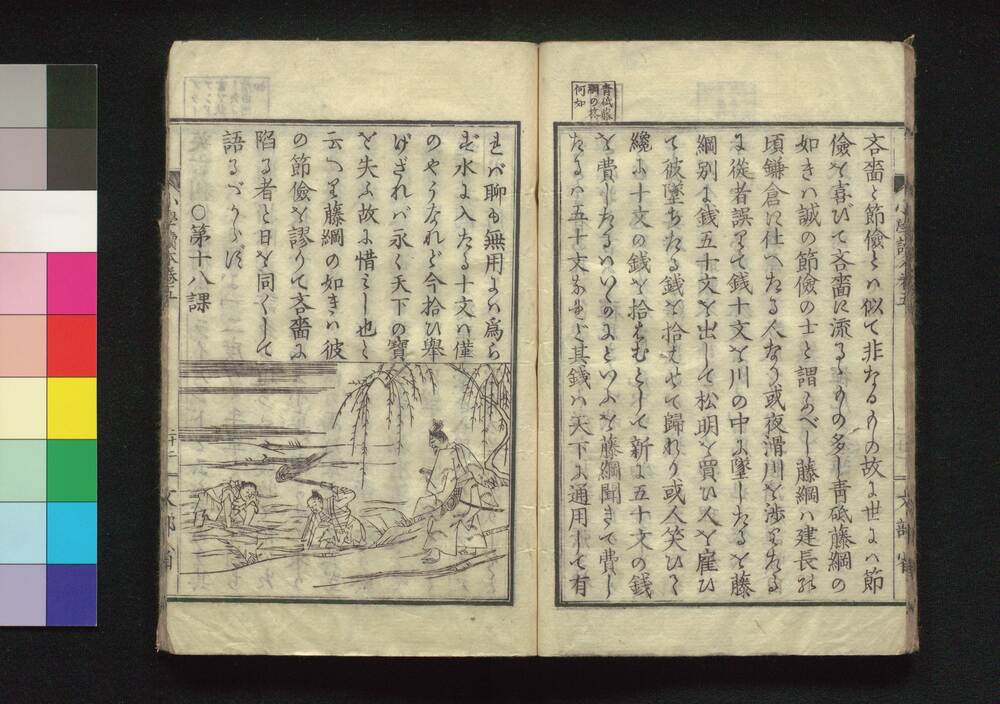 青砥藤
綱の挍
何如
吝嗇と節儉とハ似て非なるものの故に世にハ節
儉を喜びて吝嗇に流るゝもの多し青砥藤綱の
如きハ誠の節儉の士と謂ふべし藤綱ハ建長の
頃鎌倉に仕へたる人なり或夜滑川を渉りたる
に從者誤りて銭十文を川の中に墜したるを藤
綱別に銭五十文を出して松明を買ひ人を雇ひ
て彼墜ちたる銭を拾はせて歸れり或人笑ひて
纔に十文の銭を拾はむとして新に五十文の銭
を費したるハいかにといふを藤綱聞きて費し
たるハ五十文なれど其銭ハ天下に通用して有
れバ聊も無用にハ爲らず
水に入たる十文ハ僅
のやうなれど今拾ひ擧
げざれバ永く天下の寶
を失ふ故に惜みし也と
云へり藤綱の如きハ彼
の節儉を謬りて吝嗇に
陷る者と日を同くして
語るべからず
○第十八課
小學讀本卷五
二十二
文部省